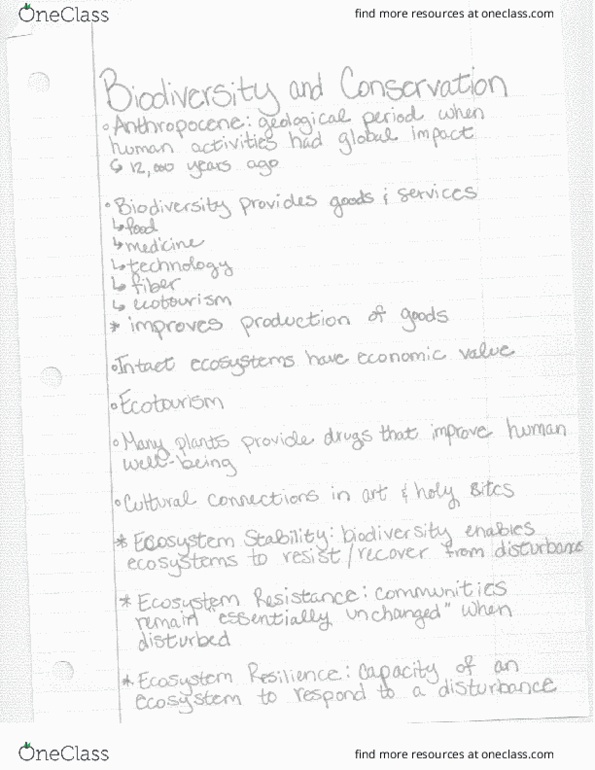 OneClass
find more resources at oneclass.com
Biodiversity and Conservation
Anthropocene: geological period when
human activities had global impact
↳ 12,000 years ago
Biodiversity provides goods & services
↳ food
↳ medicine
↳ technology
↳ fiber
↳ ecotourism
* improves production of goods
Intact ecosystems have economic value
Ecotourism
Many plants provide drugs that improve human
well-being
Cultural connections in art & holy sites
* Ecosystem Stability: biodiversity enables
ecosystems to resist/recover from disturbans
* Ecosystem Resistance: communities
remain "essentially unchanged" when
disturbed
* Ecosystem Resilience: capacity of an
ecosystem to respond to a disturbance
OneClass
find more resources at oneclass.com